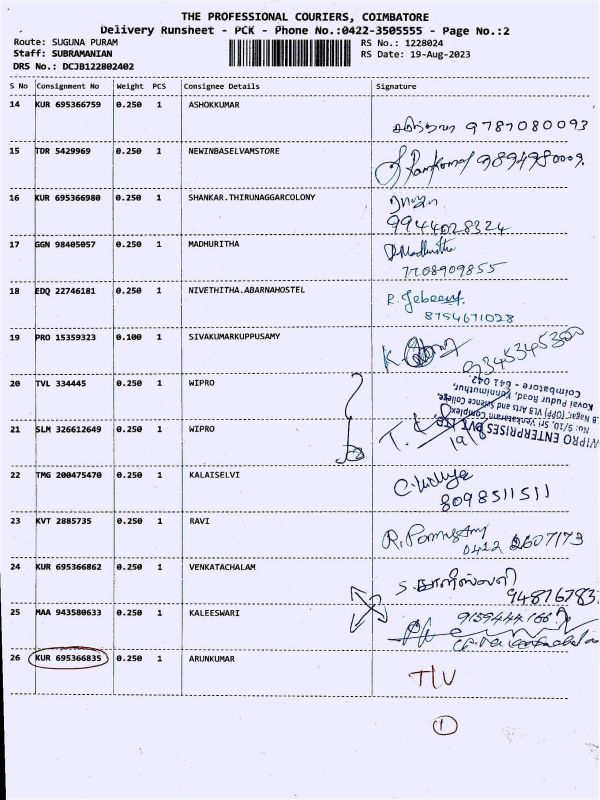 THE PROFESSIONAL COURIERS, COIMBATORE
Delivery Runsheet - PCK - Phone No.:0422-3505555 - Page No.:2
Route: SUGUNA PURAM RS No.: 1228024
Staff: SUBRAMANIAN RS Date: 19-Aug-2023
DRS No.: DCJB122802402
S No Consignment No Weight PCS Consignee Details Signature
14 KUR 695366759 0.250 1 ASHOKKUMAR
9787080093
15 TDR 5429969 0.250 1 NEWINBASELVAMSTORE
9894980009.
16 KUR 695366980 0.250 1 SHANKAR.THIRUNAGGARCOLONY
9944028324
17 GGN 98405057 0.250 1 MADHURITHA D.Madhuritha
7708909855
18 EDQ 22746181 0.250 1 NIVETHITHA.ABARNAHOSTEL
8754671028
19 PRO 15359323 0.100 1 SIVAKUMARKUPPUSAMY
9345345300
20 TVL 334445 0.250 1 WIPRO
21 SLM 326612649 0.250 1 WIPRO
WIPRO ENTERPRISES PVT LTD
No: 5/10, Sri Venkatram Complex,
B. Nagar, (OPP) VLB Arts and Science College,
Kovai Pudur Road, Kunnimuthur,
Coimbatore - 641 042.
22 TMG 200475470 0.250 1 KALAISELVI
8098511511
23 KVT 2885735 0.250 1 RAVI
0422 2607173
24 KUR 695366862 0.250 1 VENKATACHALAM
25 MAA 943580633 0.250 1 KALEESWARI
26 KUR 695366835 0.250 1 ARUNKUMAR
T/V
1